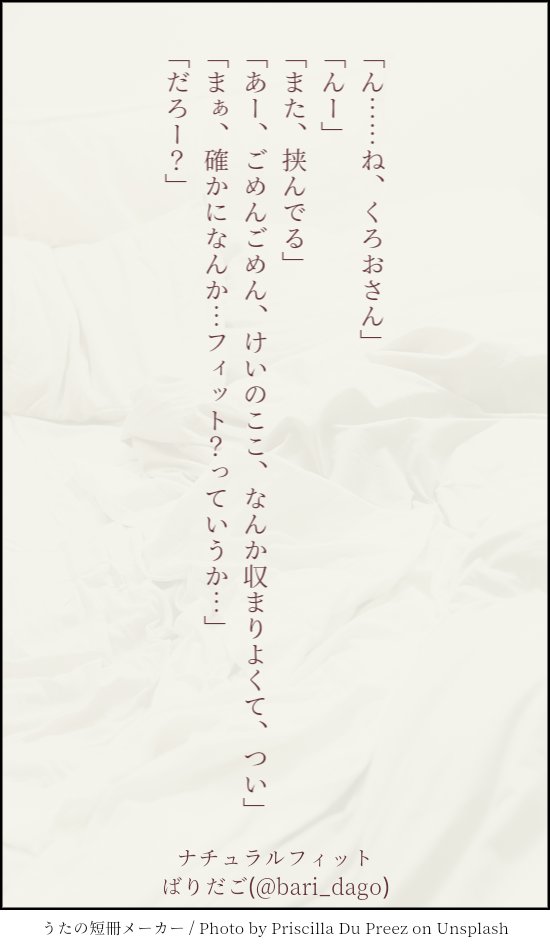 「ん……ね、くろおさん」
「んー」
「また、挟んでる」
「あー、ごめんごめん、けいのここ、なんか収まりよくて、つい」
「まぁ、確かになんか…フィット？っていうか…」
「だろー？」
ナチュラルフィット
ばりだご(@bari_dago)
うたの短冊メーカー / Photo by Priscilla Du Preez on Unsplash